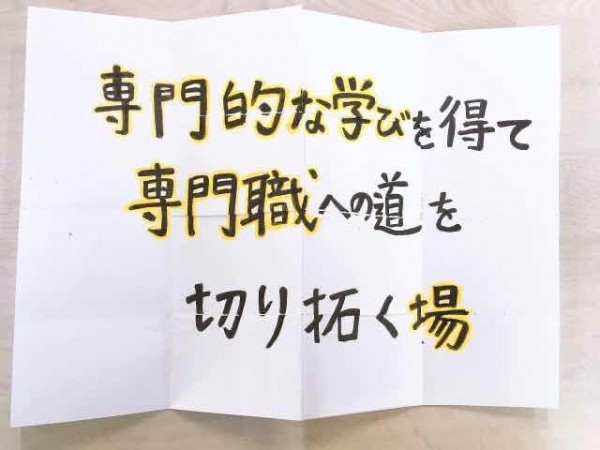 専門的な学びを得て
専門職への道を
切り拓く場